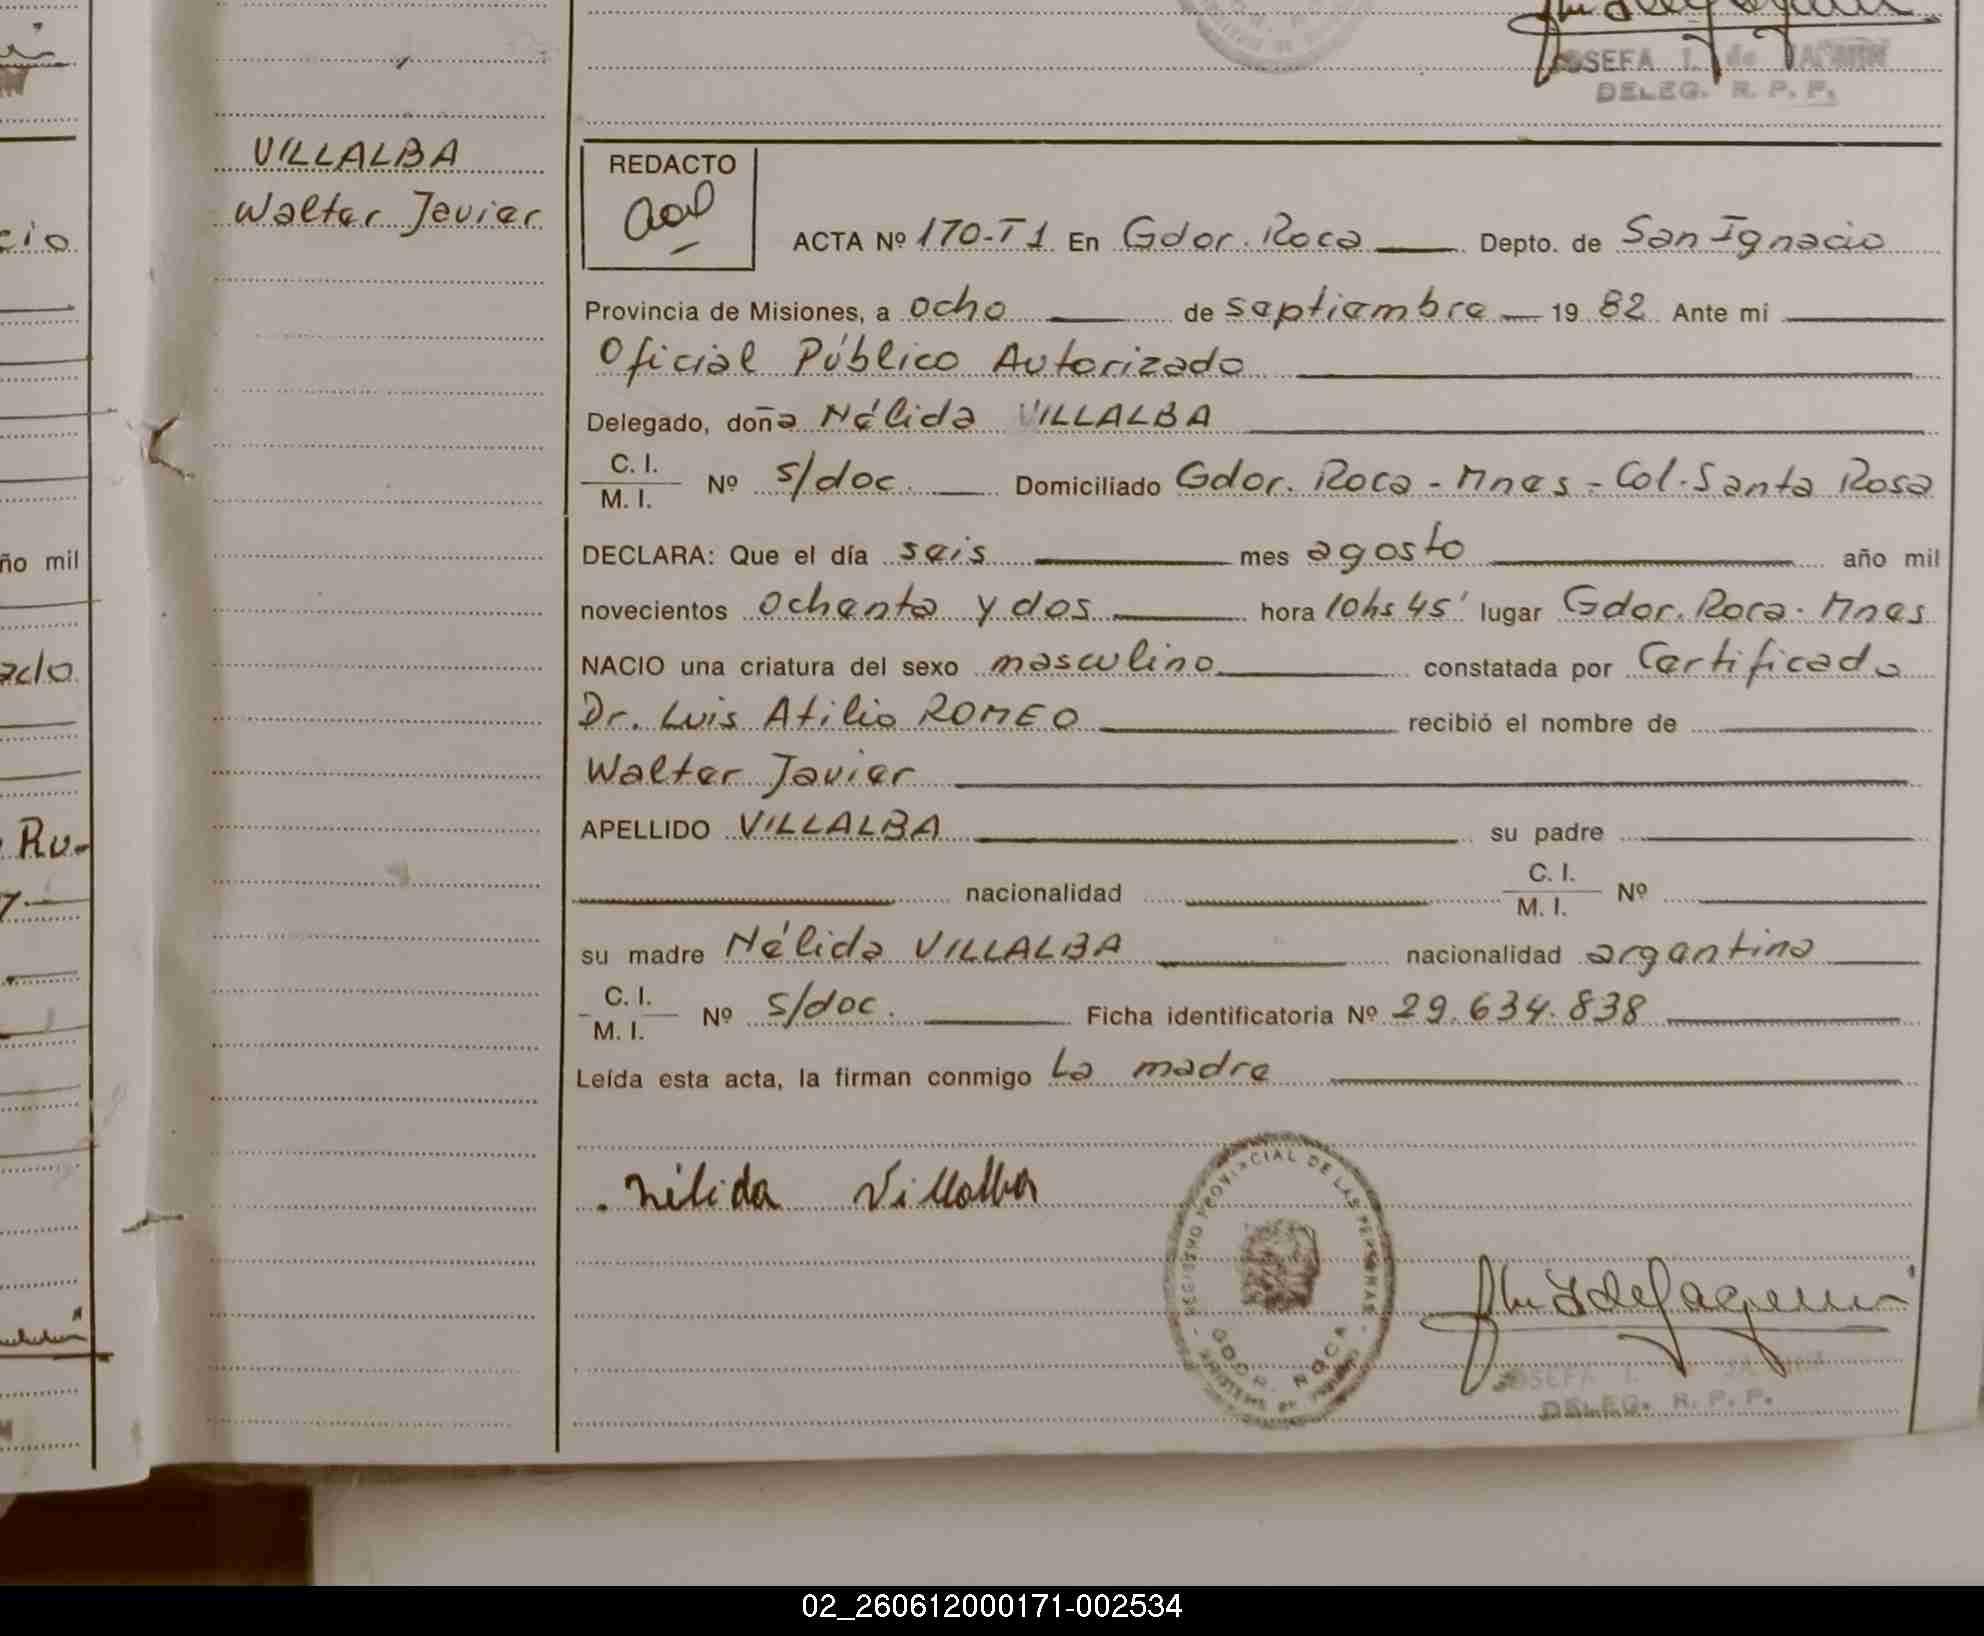 JOSEFA I. de
DELEG. R. P. P.
VILLALBA
Walter Javier
REDACTO
ACTA Nº 170-T1 En Gdor. Roca Depto. de San Ignacio
Provincia de Misiones, a ocho de septiembre 19 82 Ante mi
Oficial Público Autorizado
Delegado, doña Nélida VILLALBA
C. I.
M. I. Nº s/doc. Domiciliado Gdor. Roca - Mnes - Col. Santa Rosa
DECLARA: Que el día seis mes agosto año mil
novecientos ochenta y dos hora 10hs 45' lugar Gdor. Roca - Mnes
NACIO una criatura del sexo masculino constatada por Certificado
Dr. Luis Atilio ROMEO recibió el nombre de
Walter Javier
APELLIDO VILLALBA su padre
nacionalidad C. I.
M. I. Nº
su madre Nélida VILLALBA nacionalidad argentina
C. I.
M. I. Nº s/doc. Ficha identificatoria Nº 29.634.838
Leída esta acta, la firman conmigo La madre
Nélida Villalba
REGISTRO PROVINCIAL DE LAS PERSONAS
GDOR. ROCA
JOSEFA I.
DELEG. R. P. P.
cio
ño mil
Ru-
02_260612000171-002534